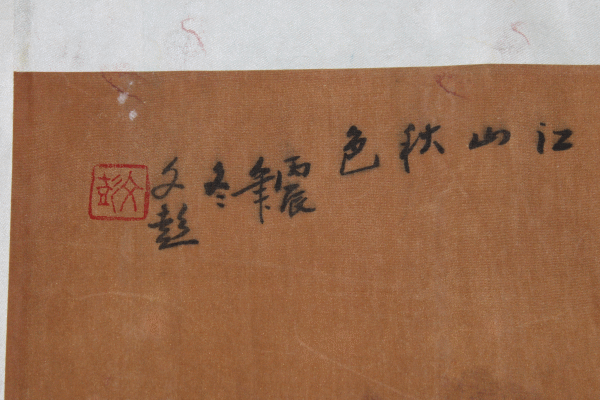 江山秋色
丙辰
年
冬
文彭
文彭